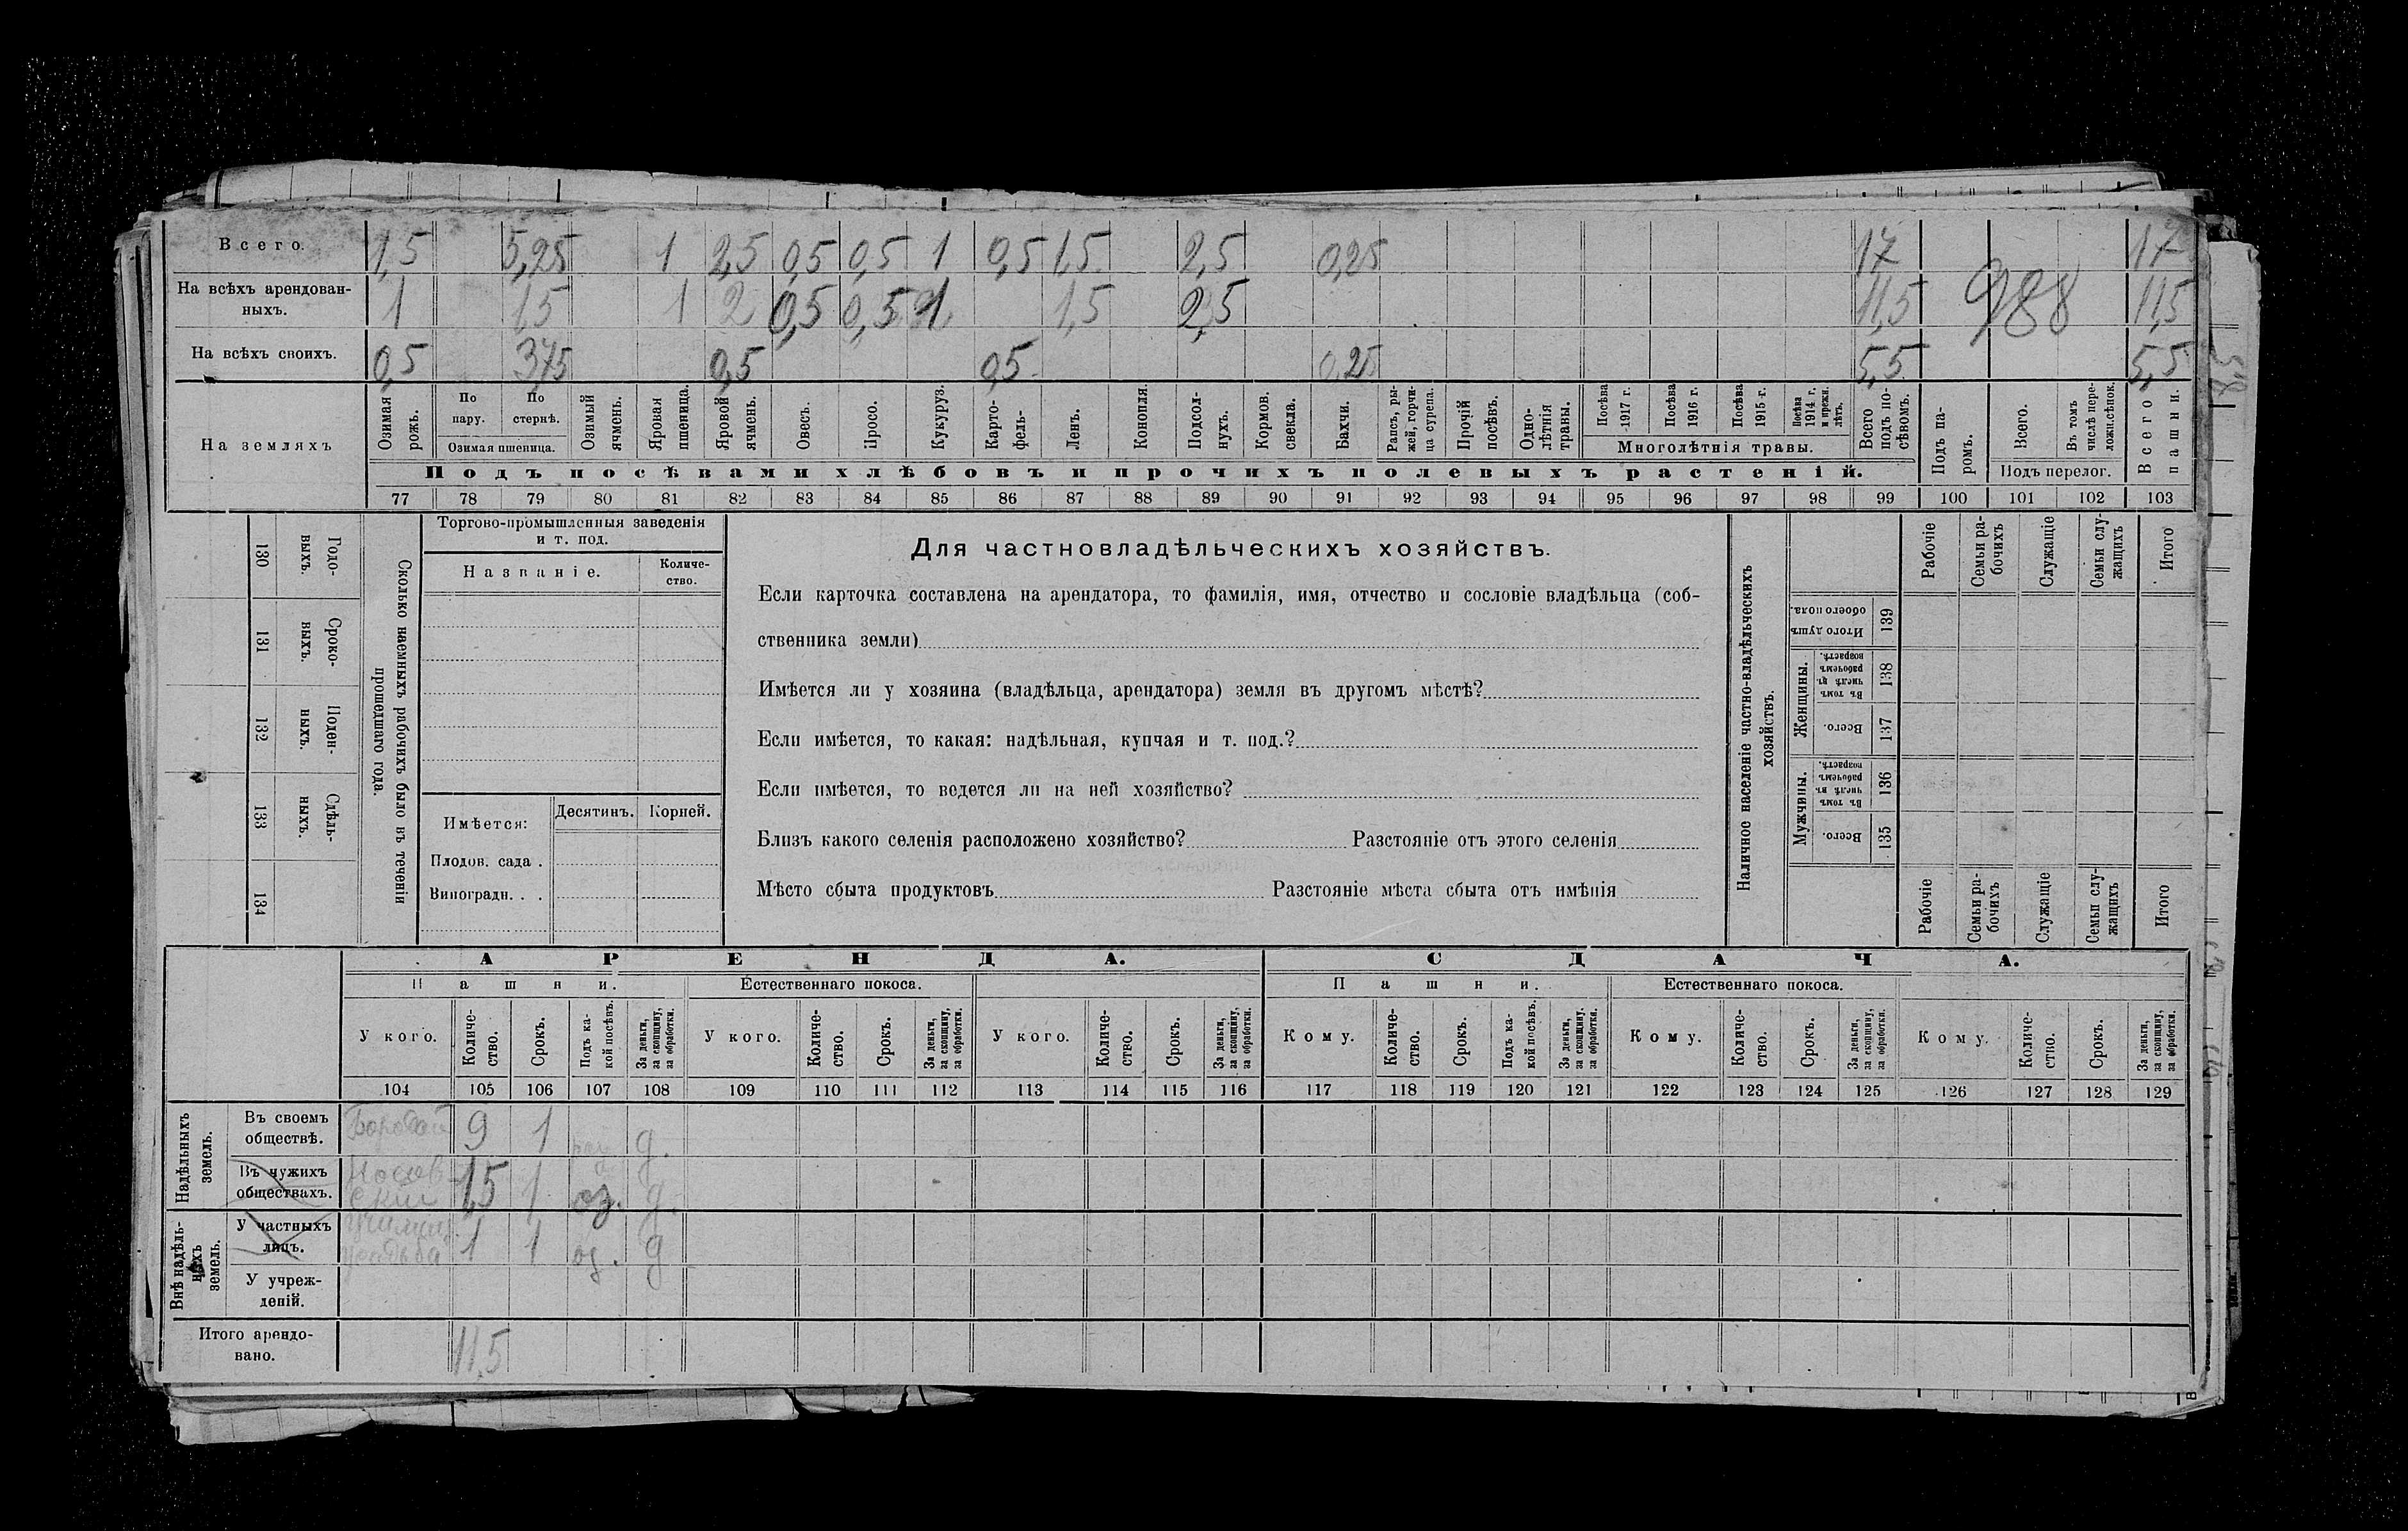 Всего. 1,5 5,25 1 2,5 0,5 0,5 1 0,5 1,5 2,5 0,25 17 17
На всѣхъ арендован-
ныхъ. 1 1,5 1 2 0,5 0,5 1 1,5 2,5 11,5 988 11,5
На всѣхъ своихъ. 0,5 3,75 0,5 0,5 0,25 5,5 5,5
На земляхъ
Озимая рожь.
По пару.
По стернѣ.
Озимая пшеница.
Озимый ячмень.
Яровая пшеница.
Яровой ячмень.
Овесъ.
Просо.
Кукуруз.
Карто-
фель-
Ленъ.
Конопля.
Подсол-
нухъ.
Кормов.
свекла.
Бахчи.
Рапсъ, ры-
жей, горчи-
ца сурепа.
Прочій
посѣвъ.
Одно-
лѣтнія
травы.
Посѣва
1917 г.
Посѣва
1916 г.
Посѣва
1915 г.
Посѣва
1914 г.
и прежн.
лѣтъ.
Многолѣтнія травы.
Всего
подъ по-
сѣвомъ.
Подъ па-
ромъ.
Всего.
Въ томъ
числѣ пере-
ложн.сѣнок.
Подъ перелог.
Всего
пашни.
Подъ посѣвами хлѣбовъ и прочихъ полевыхъ растеній.
77 78 79 80 81 82 83 84 85 86 87 88 89 90 91 92 93 94 95 96 97 98 99 100 101 102 103
130 Годо-
выхъ.
131 Сроко-
выхъ.
132 Поден-
ныхъ.
133 Сдѣль-
ныхъ.
134
Сколько наемныхъ рабочихъ было въ теченіи
прошедшаго года.
Торгово-промышленныя заведенія
и т. под.
Названіе.
Количе-
ство.
Имѣется:
Десятинъ. Корней.
Плодов. сада .
Виноградн. . .
Для частновладѣльческихъ хозяйствъ.
Если карточка составлена на арендатора, то фамилія, имя, отчество и сословіе владѣльца (соб-
ственника земли)
Имѣется ли у хозяина (владѣльца, арендатора) земля въ другомъ мѣстѣ?
Если имѣется, то какая: надѣльная, купчая и т. под.?
Если имѣется, то ведется ли на ней хозяйство?
Близъ какого селенія расположено хозяйство? Разстояніе отъ этого селенія
Мѣсто сбыта продуктовъ Разстояніе мѣста сбыта отъ имѣнія
Наличное населеніе частно-владѣльческихъ
хозяйствъ.
Рабочіе
Семьи ра-
бочихъ
Служащіе
Семьи слу-
жащихъ
Итого
Итого душъ
обоего пола. 139
Женщины.
Въ томъ
числѣ въ
рабочемъ
возрастѣ. 138
Всего. 137
Мужчины.
Въ томъ
числѣ въ
рабочемъ
возрастѣ. 136
Всего. 135
Рабочіе
Семьи ра-
бочихъ
Служащіе
Семьи слу-
жащихъ
Итого
АРЕНДА. СДАЧА.
Пашни. Естественнаго покоса. Пашни. Естественнаго покоса.
У кого.
Количе-
ство.
Срокъ.
Подъ ка-
кой посѣвъ.
За деньги,
за скопщину,
за обработки.
У кого.
Количе-
ство.
Срокъ.
За деньги,
за скопщину,
за обработки.
У кого.
Количе-
ство.
Срокъ.
За деньги,
за скопщину,
за обработки.
Кому.
Количе-
ство.
Срокъ.
Подъ ка-
кой посѣвъ.
За деньги,
за скопщину,
за обработки.
Кому.
Количе-
ство.
Срокъ.
За деньги,
за скопщину,
за обработки.
Кому.
Количе-
ство.
Срокъ.
За деньги,
за скопщину,
за обработки.
104 105 106 107 108 109 110 111 112 113 114 115 116 117 118 119 120 121 122 123 124 125 126 127 128 129
Надѣльныхъ
земель.
Въ своемъ
обществѣ. 9 1 д.
Въ чужихъ
обществахъ. 1,5 1 оз. д.
Внѣ надѣль-
ныхъ
земель.
У частныхъ
лицъ. 1 1 оз. д
У учреж-
деній.
Итого арендо-
вано. 11,5